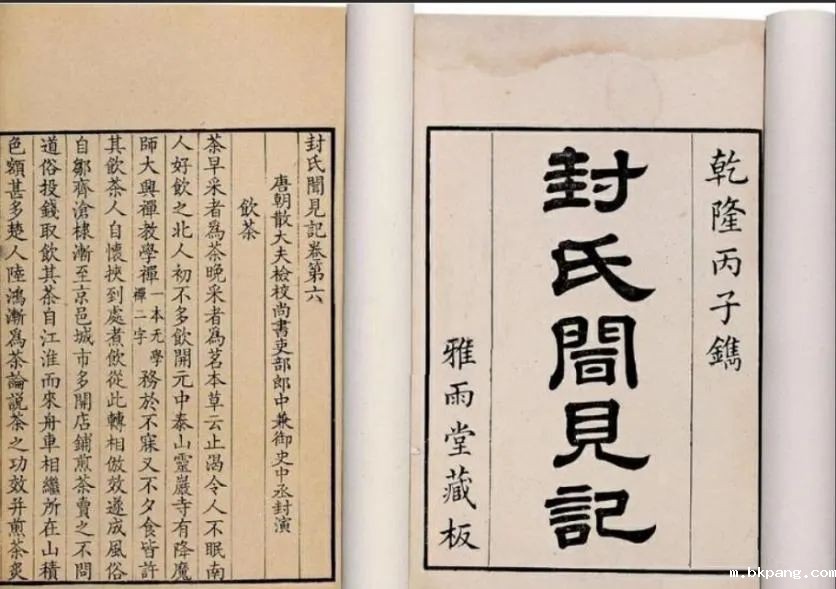 乾隆丙子鐫
封氏聞見記
雅雨堂藏板
封氏聞見記卷第六
唐朝散大夫檢校尚書吏部郎中兼御史中丞封演
飲茶
茶早采者爲茶晚采者爲茗本草云止渴令人不眠南
人好飲之北人初不多飲開元中泰山靈巖寺有降魔
師大興禪教學禪一本无學禪二字務於不寐又不夕食皆許
其飲茶人自懷挾到處煮飲從此轉相倣效遂成風俗
自鄒齊滄棣漸至京邑城市多開店鋪煎茶賣之不問
道俗投錢取飲其茶自江淮而來舟車相繼所在山積
色額甚多楚人陸鴻漸爲茶論說茶之功效并煎茶炙
m.bkpang.com